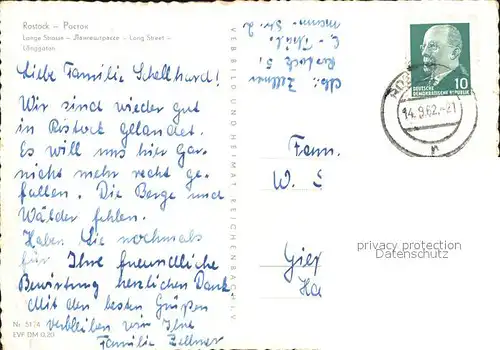 Rostock – Росток
Lange Strasse – Ленгештрассе – Long Street –
Långgatan
Liebe Familie Schellhard!
Wir sind wieder gut
in Rostock gelandet.
Es will uns hier Gar-
nichts mehr recht ge-
fallen. Die Berge und
Wälder fehlen.
Haben Sie nochmals
für Ihre freundliche
Bewirtung herzlichen Dank
Mit den besten Grüßen
verbleiben wir Ihre
Familie Zellner
Nr. 5124
EVP DM 0.20
VEB BILD UND HEIMAT REICHENBACH I. V.
Abs: Zellner
Rostock 5,
Str. 2
10
DEUTSCHE
DEMOKRATISCHE REPUBLIK
14.9.62.-21
n
Fam.
W. S
Gieß
Ha
privacy protection
Datenschutz